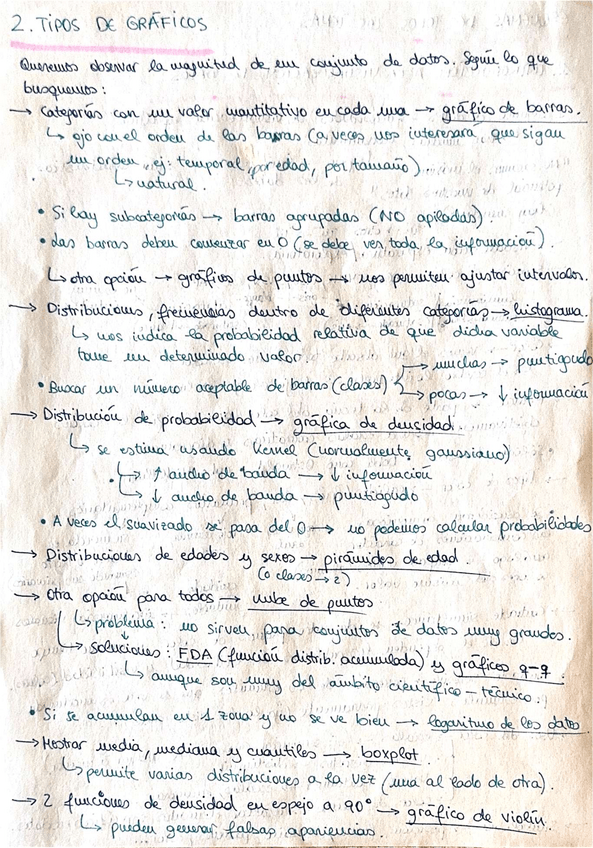 2. TIPOS DE GRÁFICOS
Queremos observar la magnitud de un conjunto de datos. Según lo que
busquemos:
→ Categorías con un valor cuantitativo en cada una → gráfico de barras.
↳ ojo con el orden de las barras (a veces nos interesará que sigan
un orden, ej: temporal, por edad, por tamaño)
↳ natural.
• Si hay subcategorías → barras agrupadas (NO apiladas)
• Las barras deben comenzar en 0 (se debe ver toda la información).
↳ otra opción → gráficos de puntos → nos permiten ajustar intervalos.
→ Distribuciones, frecuencias dentro de diferentes categorías → histograma.
↳ nos indica la probabilidad relativa de que dicha variable
tome un determinado valor.
→ muchas → puntiagudo
• Buscar un número aceptable de barras (clases)
→ pocas → ↓ información
→ Distribución de probabilidad → gráfica de densidad.
↳ se estima usando Kernel (normalmente gaussiano)
• ↳ ↑ ancho de banda → ↓ información
↳ ↓ ancho de banda → puntiagudo
• A veces el suavizado se pasa del 0 → no podemos calcular probabilidades
→ Distribuciones de edades y sexos → pirámides de edad.
(o clases → 2)
→ Otra opción para todos → nube de puntos
↳ problema: no sirven para conjuntos de datos muy grandes.
↳ soluciones: FDA (función distrib. acumulada) y gráficos q-q.
↳ aunque son muy del ámbito científico-técnico.
• Si se acumulan en 1 zona y no se ve bien → logaritmo de los datos
→ Mostrar media, mediana y cuantiles → boxplot.
↳ permite varias distribuciones a la vez (una al lado de otra).
→ 2 funciones de densidad en espejo a 90° → gráfico de violín.
↳ pueden generar falsas apariencias.